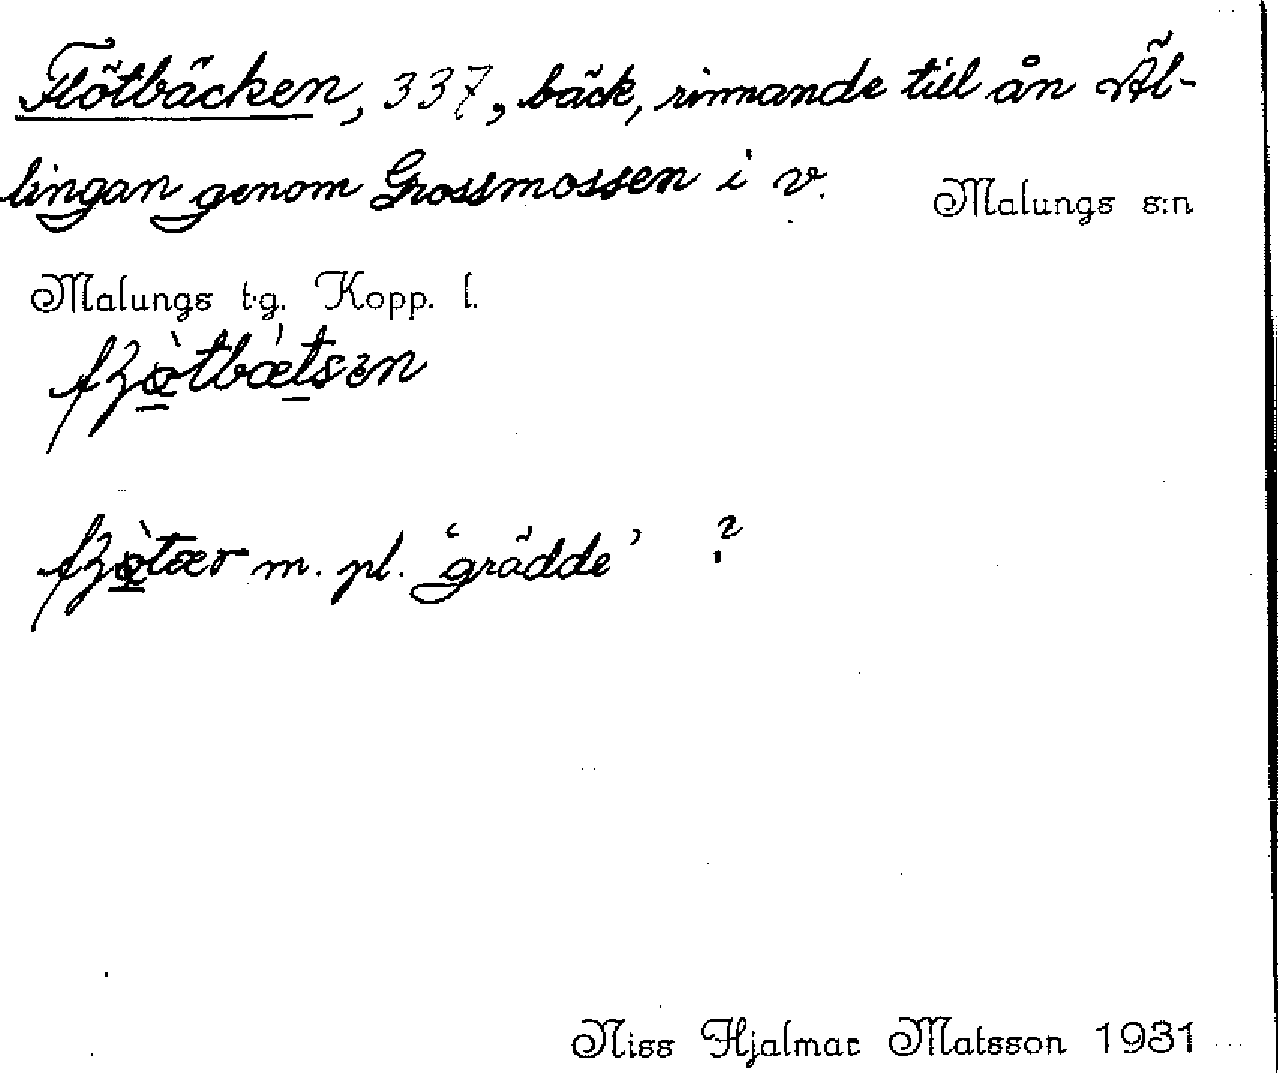 Flötbäcken, 337, bäck, rinnande till ån Äl-
lingan genom Grossmossen i v.
Malungs s:n
Malungs t.g. Kopp. l.
m. pl. 'grädde' ?
Niss Hjalmar Matsson 1931